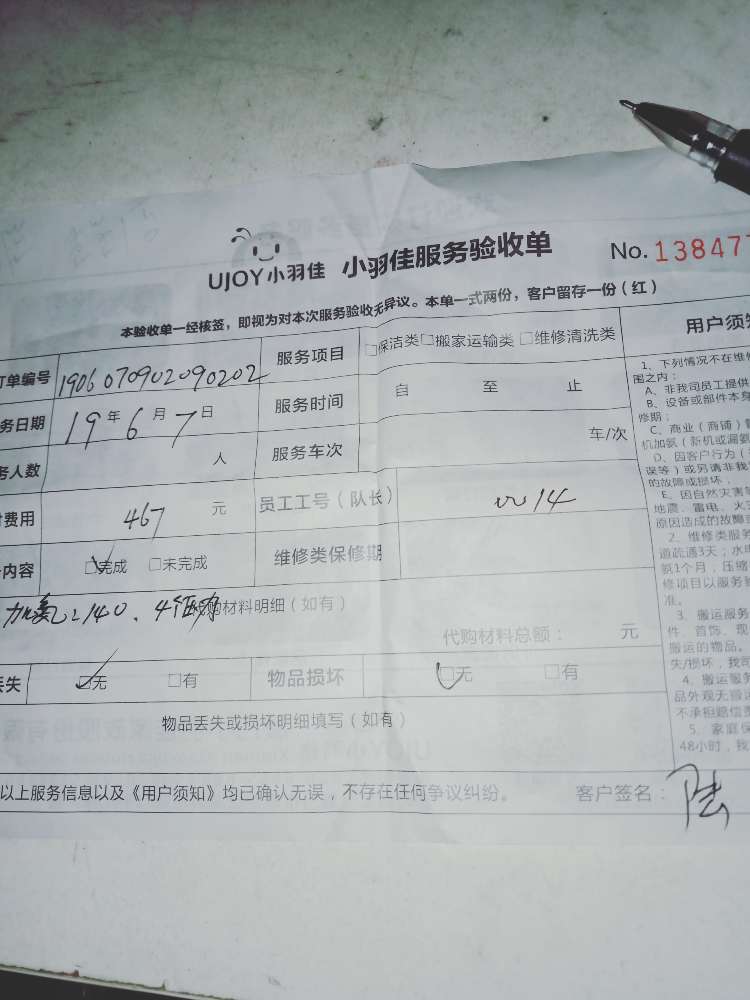 UJOY小羽佳 小羽佳服务验收单 No. 13847
本验收单一经核签，即视为对本次服务验收无异议。本单一式两份，客户留存一份（红）
订单编号 1906070902090202 服务项目 □保洁类□搬家运输类 □维修清洗类
务日期 19年6月7日 服务时间 自 至 止
务人数 人 服务车次 车/次
费用 467 元 员工工号（队长） 14
内容 □完成 □未完成 维修类保修期
代购材料明细（如有）
代购材料总额： 元
丢失 □无 □有 物品损坏 □无 □有
物品丢失或损坏明细填写（如有）
以上服务信息以及《用户须知》均已确认无误，不存在任何争议纠纷。 客户签名：陆
用户须知
1、下列情况不在维修
围之内：
A、非我司员工提供
B、设备或部件本身
修期；
C、商业（商铺）
机加氨（新机或漏氨
D、因客户行为（
误等）或另请非我
的故障或损坏；
E、因自然灾害等
地震、雷电、火
原因造成的故障
2、维修类服务
道疏通3天；水
氨1个月，压缩
修项目以服务验
准。
3、搬运服务
件、首饰、现
搬运的物品。
失/损坏，我司
4、搬运服务
品外观无损
不承担赔偿责
5、家庭保
48小时，我